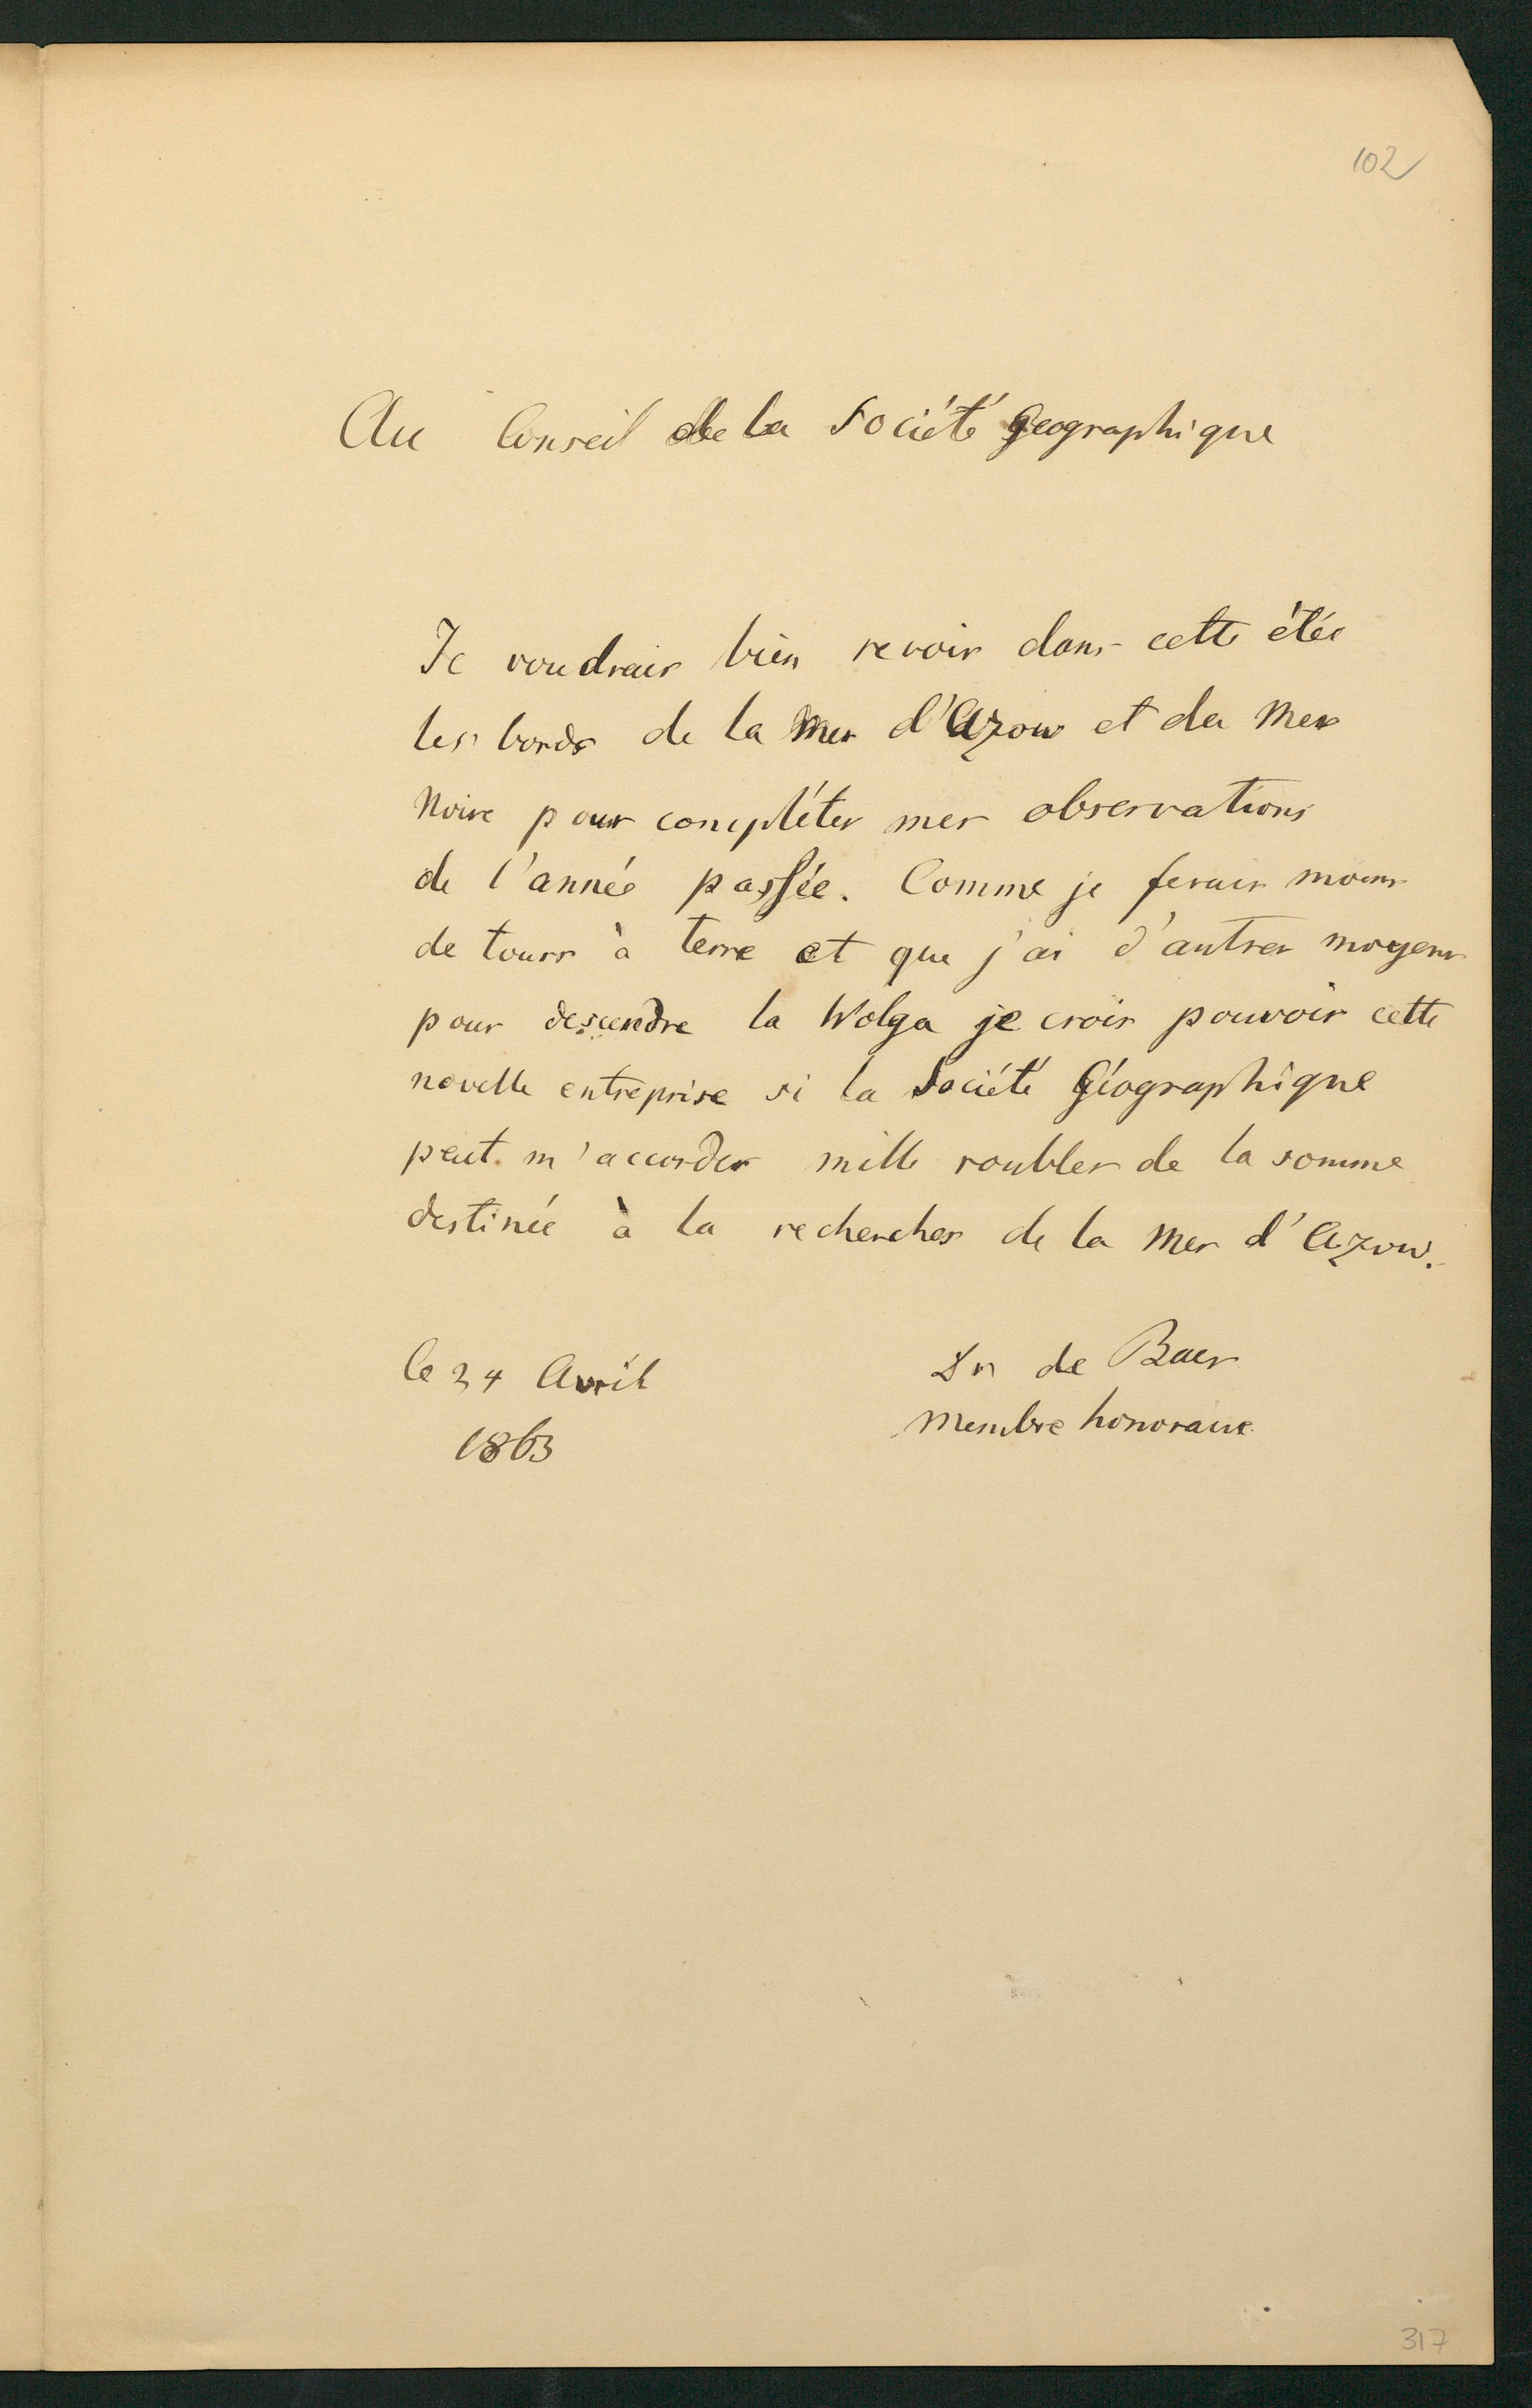 102
Au Conseil de la Société Geographique
Je voudrais bien revoir dans cette étée
les bords de la Mer d'Azow et de Mer
Noire pour compléter mes observations
de l'année passée. Comme je ferais moins
de tours à terre et que j'ai d'autres moyens
pour descendre la Wolga je crois pouvoir cette
novelle entreprise si la Société Géographique
peut m'accorder mille roubles de la somme
destinée à la recherches de la Mer d'Azow.
le 24 Avril
1863
de Baer
Membre honoraire
317